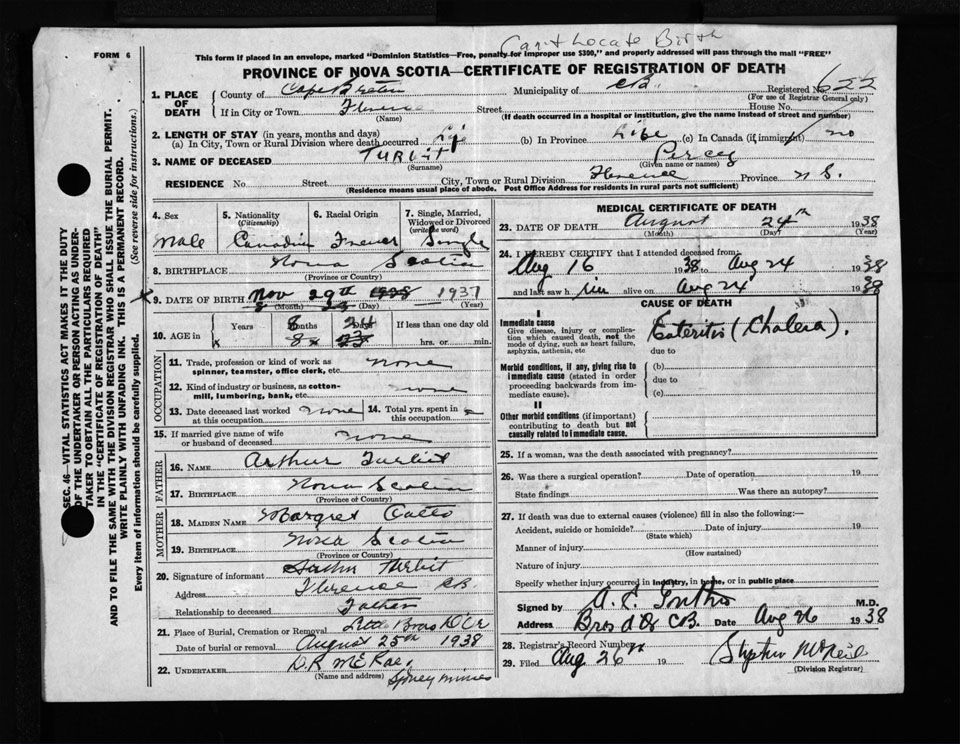 Can't Locate Birth
FORM 6
This form if placed in an envelope, marked "Dominion Statistics—Free, penalty for improper use $300," and properly addressed will pass through the mail "FREE"
PROVINCE OF NOVA SCOTIA—CERTIFICATE OF REGISTRATION OF DEATH
1. PLACE OF DEATH
County of Cape Breton Municipality of C.B. Registered No. 622
(For use of Registrar General only)
If in City or Town Florence Street House No.
(Name) (If death occurred in a hospital or institution, give the name instead of street and number)
2. LENGTH OF STAY (in years, months and days)
(a) In City, Town or Rural Division where death occurred Life (b) In Province Life (c) In Canada (if immigrant) no
3. NAME OF DECEASED TURBIT Percy
(Surname) (Given name or names)
RESIDENCE No. Street City, Town or Rural Division Florence Province N S.
(Residence means usual place of abode. Post Office Address for residents in rural parts not sufficient)
4. Sex 5. Nationality (Citizenship) 6. Racial Origin 7. Single, Married, Widowed or Divorced (write the word)
Male Canadian French Single
8. BIRTHPLACE Nova Scotia
(Province or Country)
9. DATE OF BIRTH Nov 29th 1937
(Month) (Day) (Year)
10. AGE in Years Months Days If less than one day old
8 24
8 hrs. or min.
OCCUPATION
11. Trade, profession or kind of work as spinner, teamster, office clerk, etc. none
12. Kind of industry or business, as cotton-mill, lumbering, bank, etc. none
13. Date deceased last worked at this occupation none 14. Total yrs. spent in this occupation
15. If married give name of wife or husband of deceased none
FATHER
16. NAME Arthur Turbit
17. BIRTHPLACE Nova Scotia
(Province or Country)
MOTHER
18. MAIDEN NAME Margret
19. BIRTHPLACE Nova Scotia
(Province or Country)
20. Signature of informant Turbit
Address Florence CB
Relationship to deceased Father
21. Place of Burial, Cremation or Removal Little Bras D'Or
Date of burial or removal August 25th 1938
22. UNDERTAKER D.R McRae,
(Name and address) Sydney mines
MEDICAL CERTIFICATE OF DEATH
23. DATE OF DEATH August 24th 1938
(Month) (Day) (Year)
24. I HEREBY CERTIFY that I attended deceased from:
Aug 16 1938 to Aug 24 1938
and last saw him alive on Aug 24 1938
CAUSE OF DEATH
I
Immediate cause
Give disease, injury or complication which caused death, not the mode of dying, such as heart failure, asphyxia, asthenia, etc
Enteritis (Cholera).
due to
Morbid conditions, if any, giving rise to immediate cause (stated in order proceeding backwards from immediate cause).
(b)
due to
(c)
II
Other morbid conditions (if important) contributing to death but not causally related to immediate cause.
25. If a woman, was the death associated with pregnancy?
26. Was there a surgical operation? Date of operation 19
State findings Was there an autopsy?
27. If death was due to external causes (violence) fill in also the following:—
Accident, suicide or homicide? Date of injury 19
(State which)
Manner of injury
(How sustained)
Nature of injury
Specify whether injury occurred in industry, in home, or in public place
Signed by M.D.
Address Bras d'Or CB. Date Aug 26 1938
28. Registrar's Record Number
29. Filed Aug 26th 19 Stephen McNeil
(Division Registrar)
SEC. 46—VITAL STATISTICS ACT MAKES IT THE DUTY
OF THE UNDERTAKER OR PERSON ACTING AS UNDER-
TAKER TO OBTAIN ALL THE PARTICULARS REQUIRED
IN THE "CERTIFICATE OF REGISTRATION OF DEATH"
AND TO FILE THE SAME WITH THE DIVISION REGISTRAR WHO SHALL ISSUE THE BURIAL PERMIT.
WRITE PLAINLY WITH UNFADING INK. THIS IS A PERMANENT RECORD.
Every item of information should be carefully supplied. (See reverse side for instructions.)